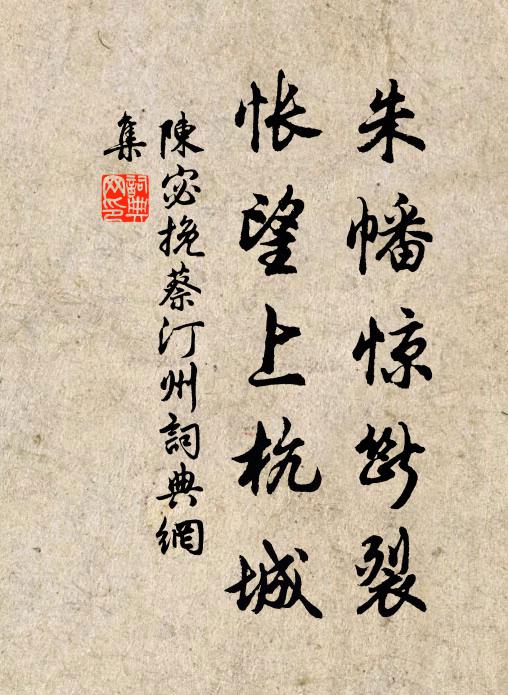 朱幡惊断裂
怅望上杭城
陳宓挽蔡汀州詞典網
集
詞典
网印